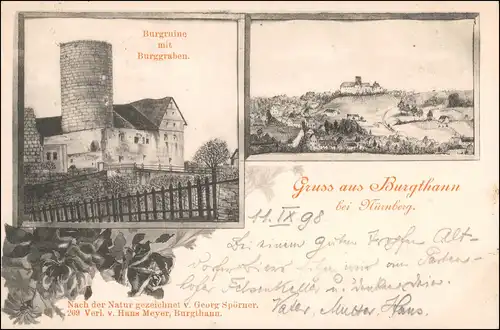 Burgruine
mit
Burggraben.
Gruss aus Burgthann
bei Nürnberg.
11. IX 98
Bei einem guten Tropfen Alt-
Vater, Mutter, Hans.
Nach der Natur gezeichnet v. Georg Spörner.
209 Verl. v. Hans Meyer, Burgthann.